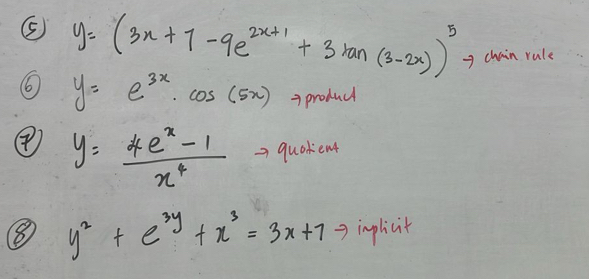 ⑤ y = (3x + 7 - 9e^{2x+1} + 3 tan (3-2x))^5 → chain rule
⑥ y = e^{3x} . cos (5x) → product
⑦ y = (4e^x - 1) / x^4 → quotient
⑧ y^2 + e^{3y} + x^3 = 3x + 7 → implicit